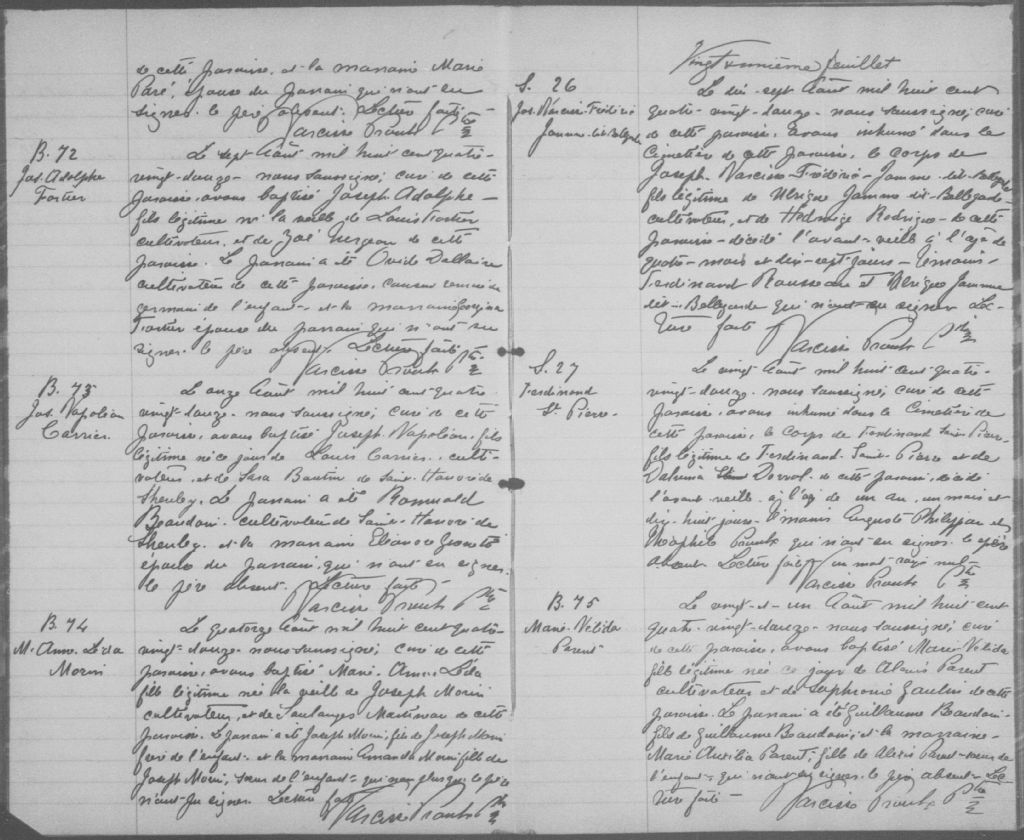 de cette paroisse, et la marraine Marie
Paré, épouse du parrain qui n'ont su
signer. le père absent. Lecture faite
Narcisse Proulx Ptre
B. 72
Jos. Adolphe
Fortier
Le sept Août mil huit cent quatre-
vingt-douze - nous soussigné, curé de cette
paroisse, avons baptisé Joseph Adolphe -
fils légitime né la veille de Louis Fortier
cultivateur, et de Zoé Turgeon de cette
paroisse. Le parrain a été Ovide Dallaire
cultivateur de cette paroisse, cousin
germain de l'enfant - et la marraine Georgina
Fortier épouse du parrain qui n'ont su
signer. le père absent. Lecture faite
Narcisse Proulx Ptre
B. 73
Jos. Napoléon
Carrier
Le onze Août mil huit cent quatre
vingt-douze - nous soussigné, curé de cette
paroisse, avons baptisé Joseph Napoléon, fils
légitime né ce jour de Louis Carrier, culti-
vateur, et de Sara Boutin de Saint-Honoré de
Shenley. Le parrain a été Romuald
Beaudoin cultivateur de Saint-Honoré de
Shenley, et la marraine Eléonore
épouse du parrain, qui n'ont su signer.
le père absent. Lecture faite
Narcisse Proulx Ptre
B. 74
M. Anne. Léda
Morin
Le quatorze Août mil huit cent quatre-
vingt-douze - nous soussigné, curé de cette
paroisse, avons baptisé Marie-Anne-Léda
fille légitime née la veille de Joseph Morin
cultivateur, et de Soulanges Martineau de cette
paroisse. Le parrain a été Joseph Morin, fils de Joseph Morin
frère de l'enfant - et la marraine Amanda Morin fille de
Joseph Morin, soeur de l'enfant - qui non plus que le père
n'ont su signer. Lecture faite
Narcisse Proulx Ptre
Vingt-unième feuillet
S. 26
Jos. Narcisse Frédéric
Jamme-dit-Bellegarde
Le dix-sept Août mil huit cent
quatre-vingt-douze - nous soussigné, curé
de cette paroisse, avons inhumé dans le
Cimetière de cette paroisse, le corps de
Joseph Narcisse Frédéric - Jamme-dit-Bellegarde
fils légitime de Ulrique Jamme-dit-Bellegarde
cultivateur, et de Hedwige Rodrigue - de cette
paroisse - décédé l'avant-veille à l'age de
quatre-mois et dix-sept jours - Témoins,
Ferdinand Rousseau et Ulrique Jamme
dit-Bellegarde qui n'ont su signer Lec-
ture faite
Narcisse Proulx Ptre
S. 27
Ferdinand
St. Pierre
Le vingt Août mil huit cent quatre-
vingt-douze - nous soussigné, curé de cette
paroisse, avons inhumé dans le Cimetière de
cette paroisse, le corps de Ferdinand Saint-Pierre
fils légitime de Ferdinand Saint-Pierre et de
Dorval de cette paroisse, décédé
l'avant veille, à l'age de un an, un mois et
dix-huit jours - Témoins Auguste Philippon et
Théophile Proulx qui n'ont su signer. le père
absent. Lecture faite Un mot rayé nul
Narcisse Proulx Ptre
B. 75
Marie-Vélida
Parent
Le vingt-et-un Août mil huit cent
quatre-vingt-douze - nous soussigné, curé
de cette paroisse, avons baptisé Marie Vélida
fille légitime née ce jour de Alexis Parent
cultivateur et de Sophronie Gaulin de cette
paroisse. Le parrain a été Guillaume Beaudoin-
fils de Guillaume Beaudoin, et la marraine -
Marie Aurélia Parent, fille de Alexis Parent - soeur de
l'enfant - qui n'ont su signer. le père absent - Lec-
ture faite
Narcisse Proulx Ptre